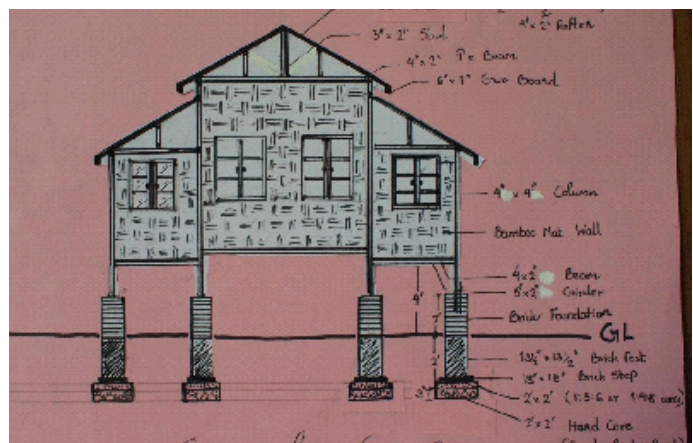 4"x 2" Rafter
3"x 2" Stud
4"x 2" Tie Beam
6"x 1" Eave Board
4" x 4" Column
Bamboo Mat Wall
4"x 2" Beam
5"x 2" Girder
4'
Brick Foundation
GL
2'
13½" x 13½" Brick Post
18"x 18" Brick Step
2'x 2' (1:3:6 or 1:4:8 conc)
2'x 2' Hard Core